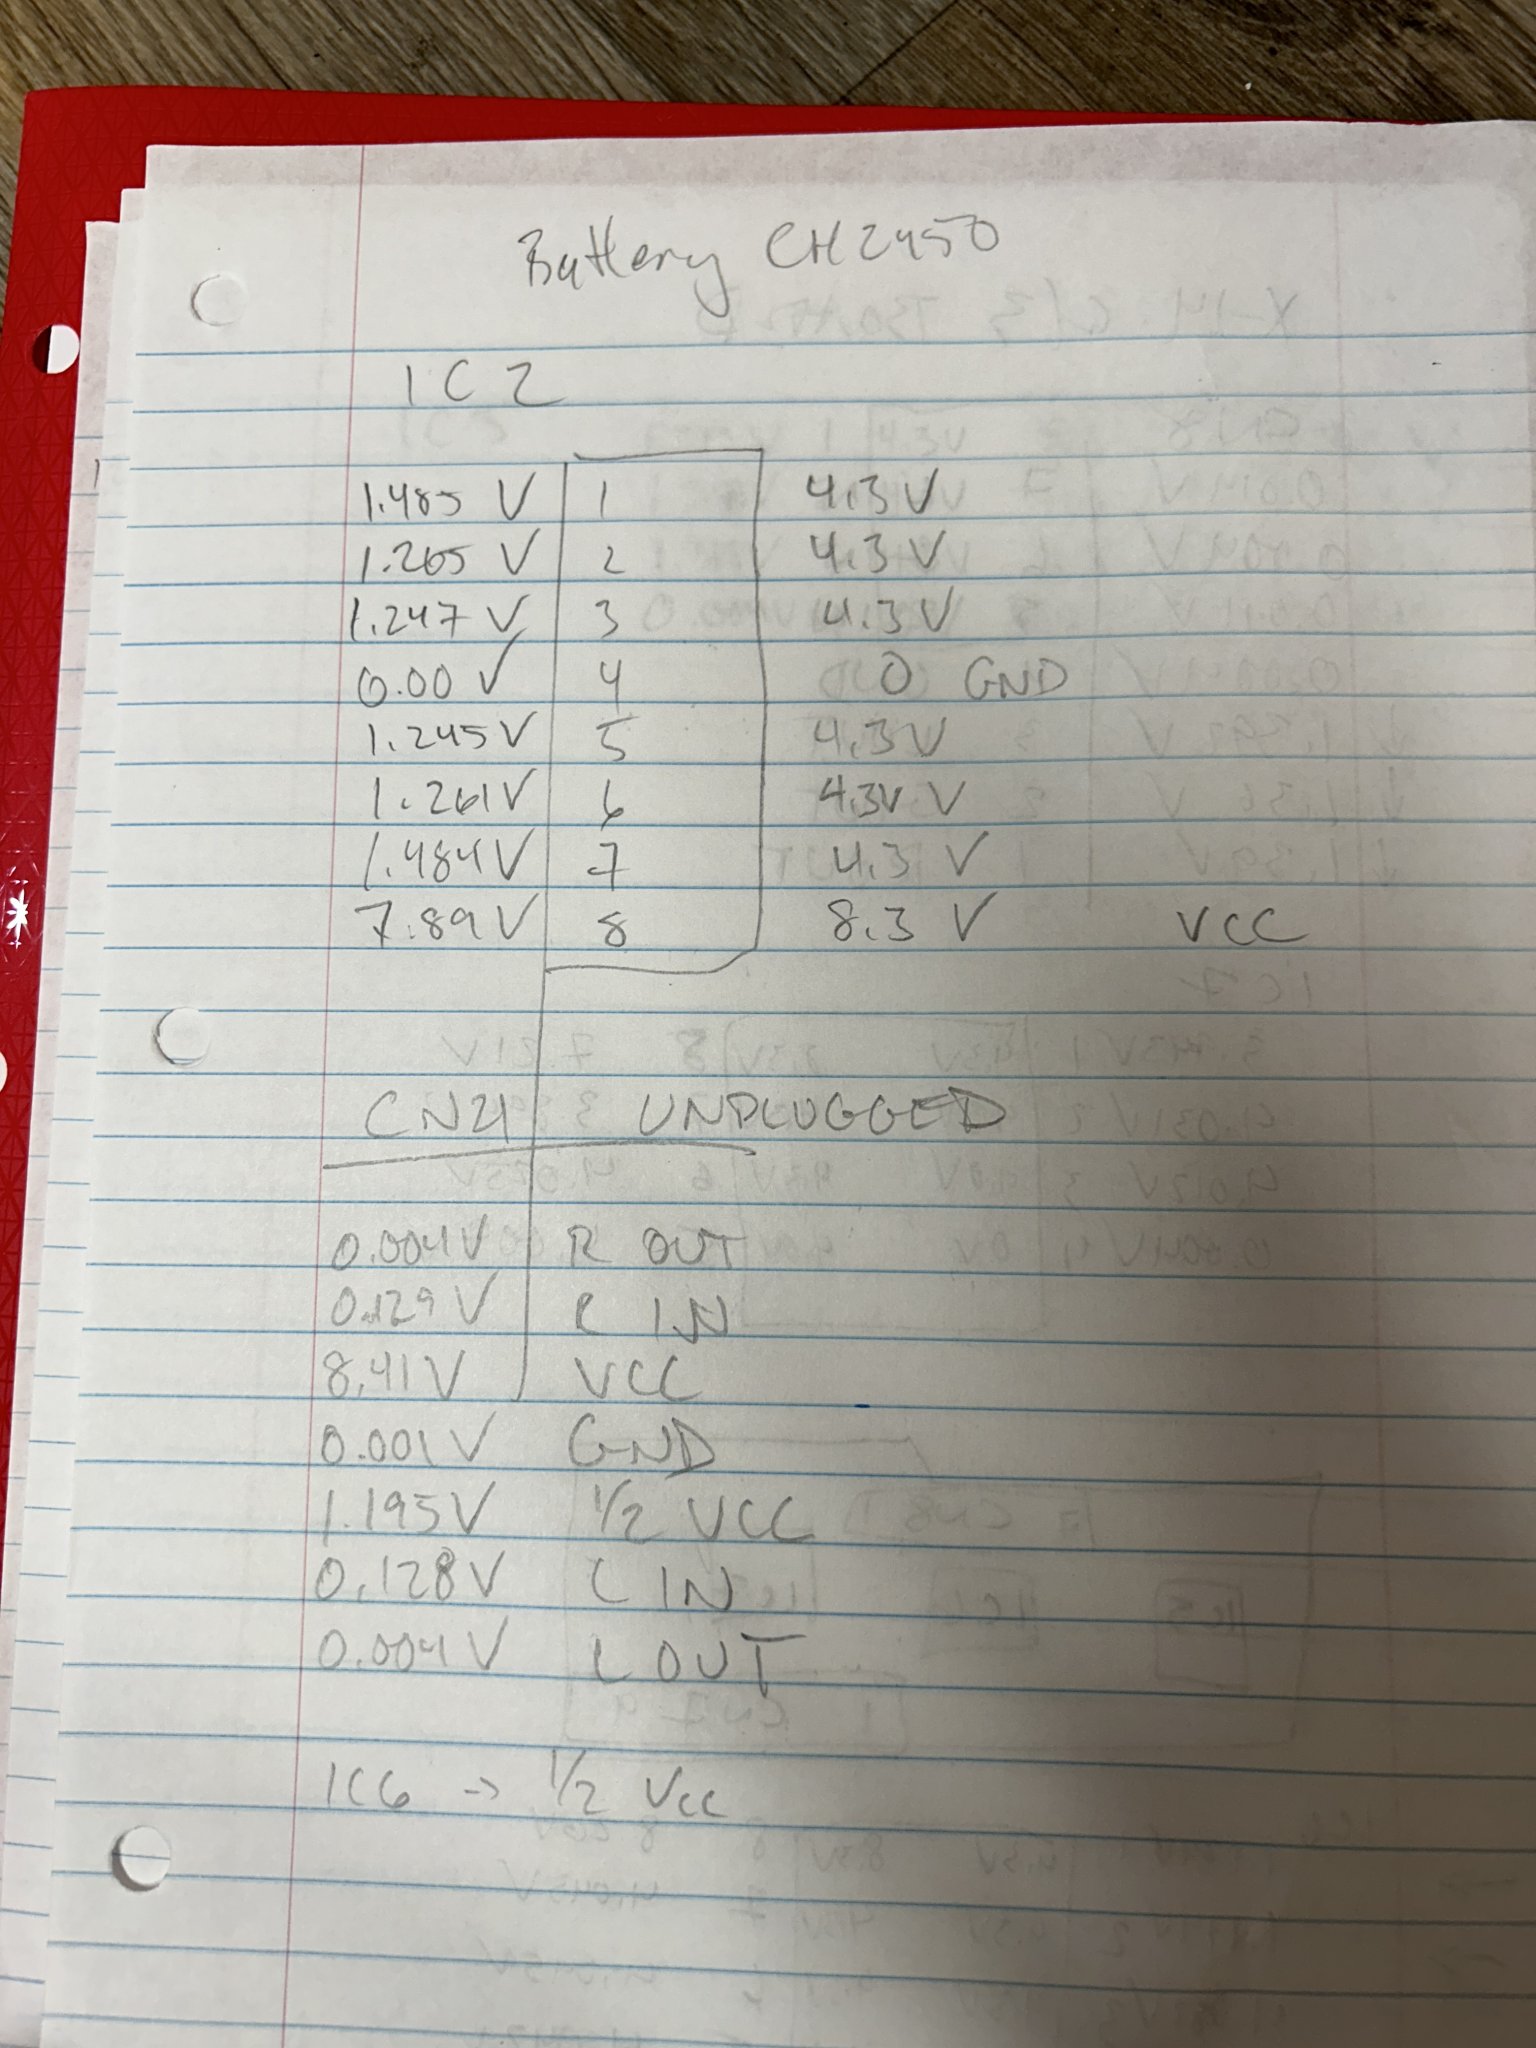 Battery CH2450
IC2
1.485 V 1 4.3 V
1.265 V 2 4.3 V
1.247 V 3 4.3 V
0.00 V 4 0 GND
1.245 V 5 4.3 V
1.261 V 6 4.3V V
1.484 V 7 4.3 V
7.89 V 8 8.3 V VCC
CN21 UNPLUGGED
0.004 V R OUT
0.129 V R IN
8.41 V VCC
0.001 V GND
1.195 V 1/2 VCC
0.128 V L IN
0.004 V L OUT
IC6 -> 1/2 Vcc